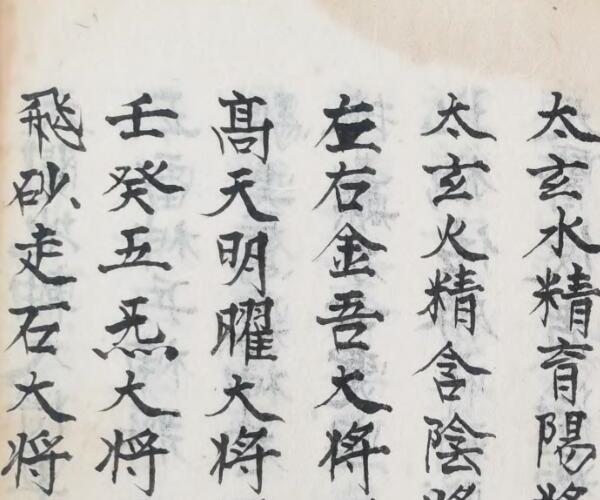 太玄水精育陽將
太玄火精含陰將
左右金吾大将
髙天明曜大将
壬癸五炁大将
飛砂走石大将